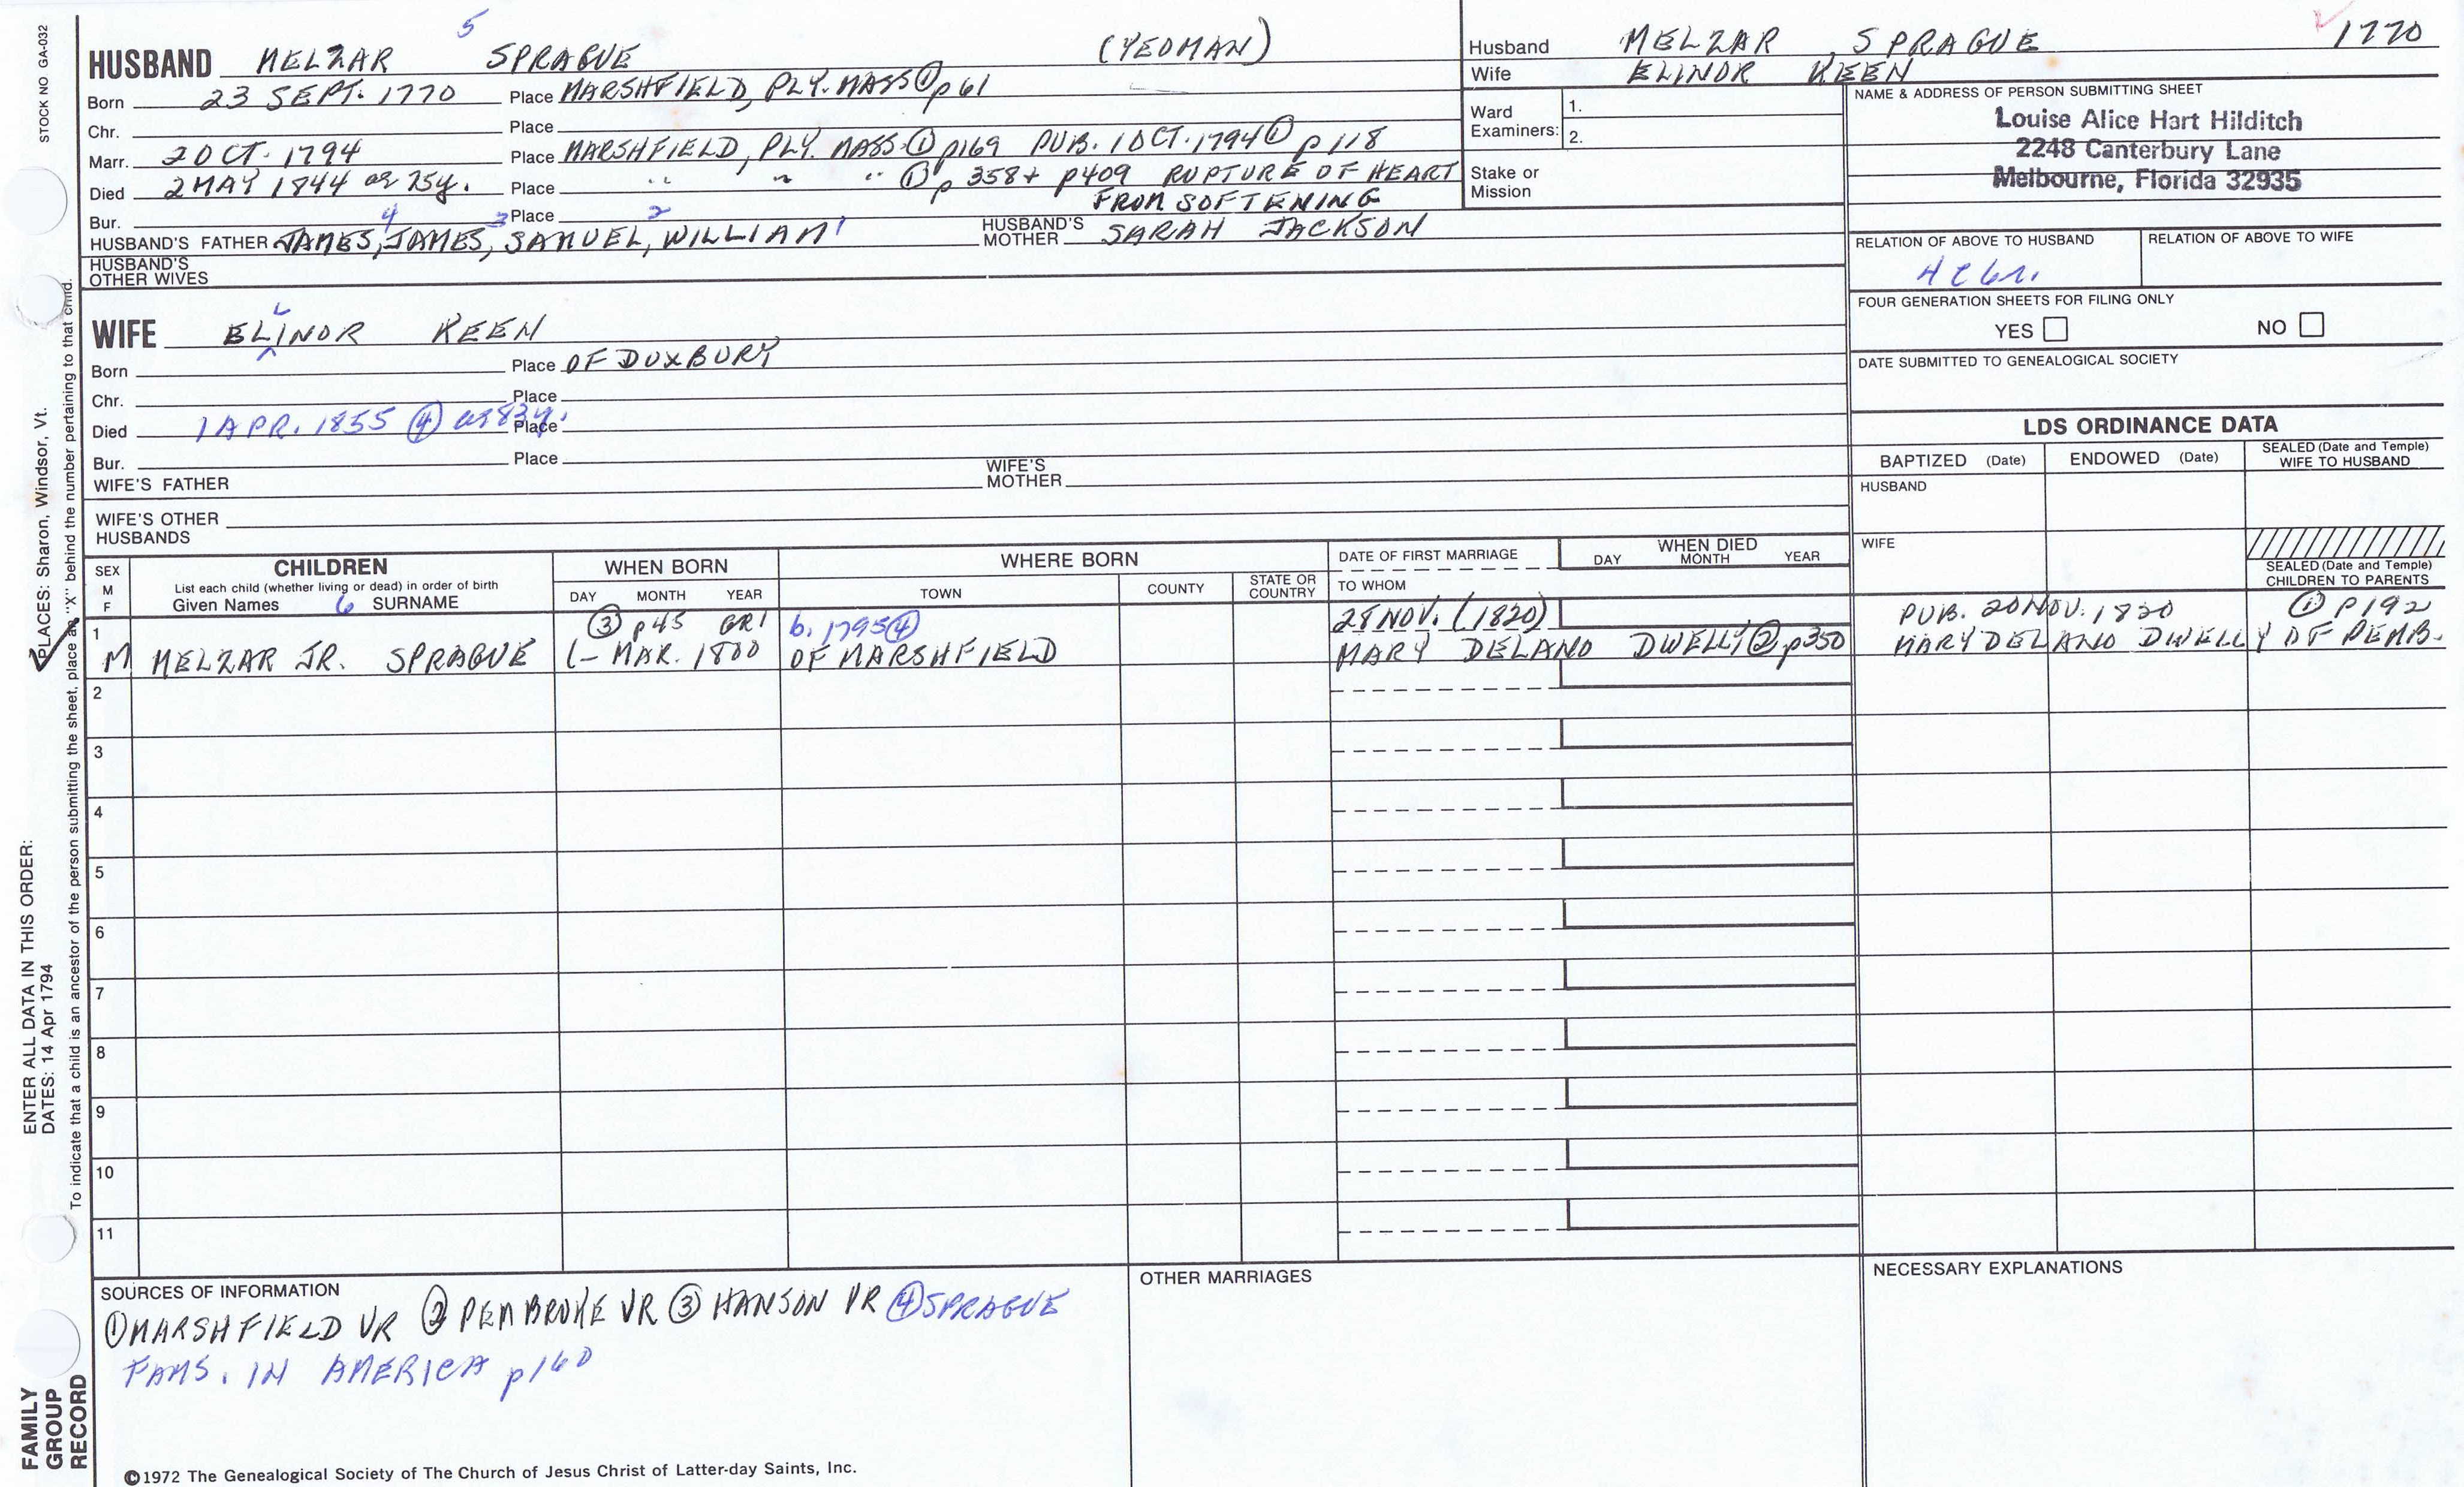 STOCK NO GA-032
5
HUSBAND MELZAR SPRAGUE (YEOMAN)
Born 23 SEPT. 1770 Place MARSHFIELD, PLY. MASS ① p61
Chr. Place
Marr. 2 OCT. 1794 Place MARSHFIELD, PLY. MASS. ① p169 PUB. 1 OCT. 1794 ① p118
Died 2 MAY 1844 ae 75y. Place " " " ① p 358 + p409 RUPTURE OF HEART
FROM SOFTENING
Bur. Place
4 3 2
HUSBAND'S FATHER JAMES, JAMES, SAMUEL, WILLIAM 1 HUSBAND'S MOTHER SARAH JACKSON
HUSBAND'S OTHER WIVES
Husband MELZAR SPRAGUE 1770
Wife ELINOR KEEN
Ward Examiners: 1.
2.
Stake or Mission
NAME & ADDRESS OF PERSON SUBMITTING SHEET
Louise Alice Hart Hilditch
2248 Canterbury Lane
Melbourne, Florida 32935
RELATION OF ABOVE TO HUSBAND RELATION OF ABOVE TO WIFE
4C6r.
FOUR GENERATION SHEETS FOR FILING ONLY
YES NO
DATE SUBMITTED TO GENEALOGICAL SOCIETY
L
WIFE ELINOR KEEN
Born Place OF DUXBURY
Chr. Place
Died 1 APR. 1855 ④ ae 83y. Place
Bur. Place
WIFE'S FATHER WIFE'S MOTHER
WIFE'S OTHER HUSBANDS
LDS ORDINANCE DATA
BAPTIZED (Date) ENDOWED (Date) SEALED (Date and Temple) WIFE TO HUSBAND
HUSBAND
WIFE
SEALED (Date and Temple) CHILDREN TO PARENTS
SEX M F
CHILDREN
List each child (whether living or dead) in order of birth
Given Names 6 SURNAME
WHEN BORN
DAY MONTH YEAR
WHERE BORN
TOWN COUNTY STATE OR COUNTRY
DATE OF FIRST MARRIAGE
TO WHOM
WHEN DIED
DAY MONTH YEAR
1 ③ p45 GR1 b. 1795 ④ 28 NOV. (1820) PUB. 20 NOV. 1820 ① p192
M MELZAR JR. SPRAGUE (– MAR. 1800 OF MARSHFIELD MARY DELAND DWELLY ② p350 MARY DELAND DWELLY OF PEMB.
2
3
4
5
6
7
8
9
10
11
SOURCES OF INFORMATION
① MARSHFIELD VR ② PEMBROKE VR ③ HANSON VR ④ SPRAGUE
FAMS. IN AMERICA p160
OTHER MARRIAGES
NECESSARY EXPLANATIONS
©1972 The Genealogical Society of The Church of Jesus Christ of Latter-day Saints, Inc.
ENTER ALL DATA IN THIS ORDER:
DATES: 14 Apr 1794
PLACES: Sharon, Windsor, Vt.
To indicate that a child is an ancestor of the person submitting the sheet, place an "X" behind the number pertaining to that child.
FAMILY
GROUP
RECORD